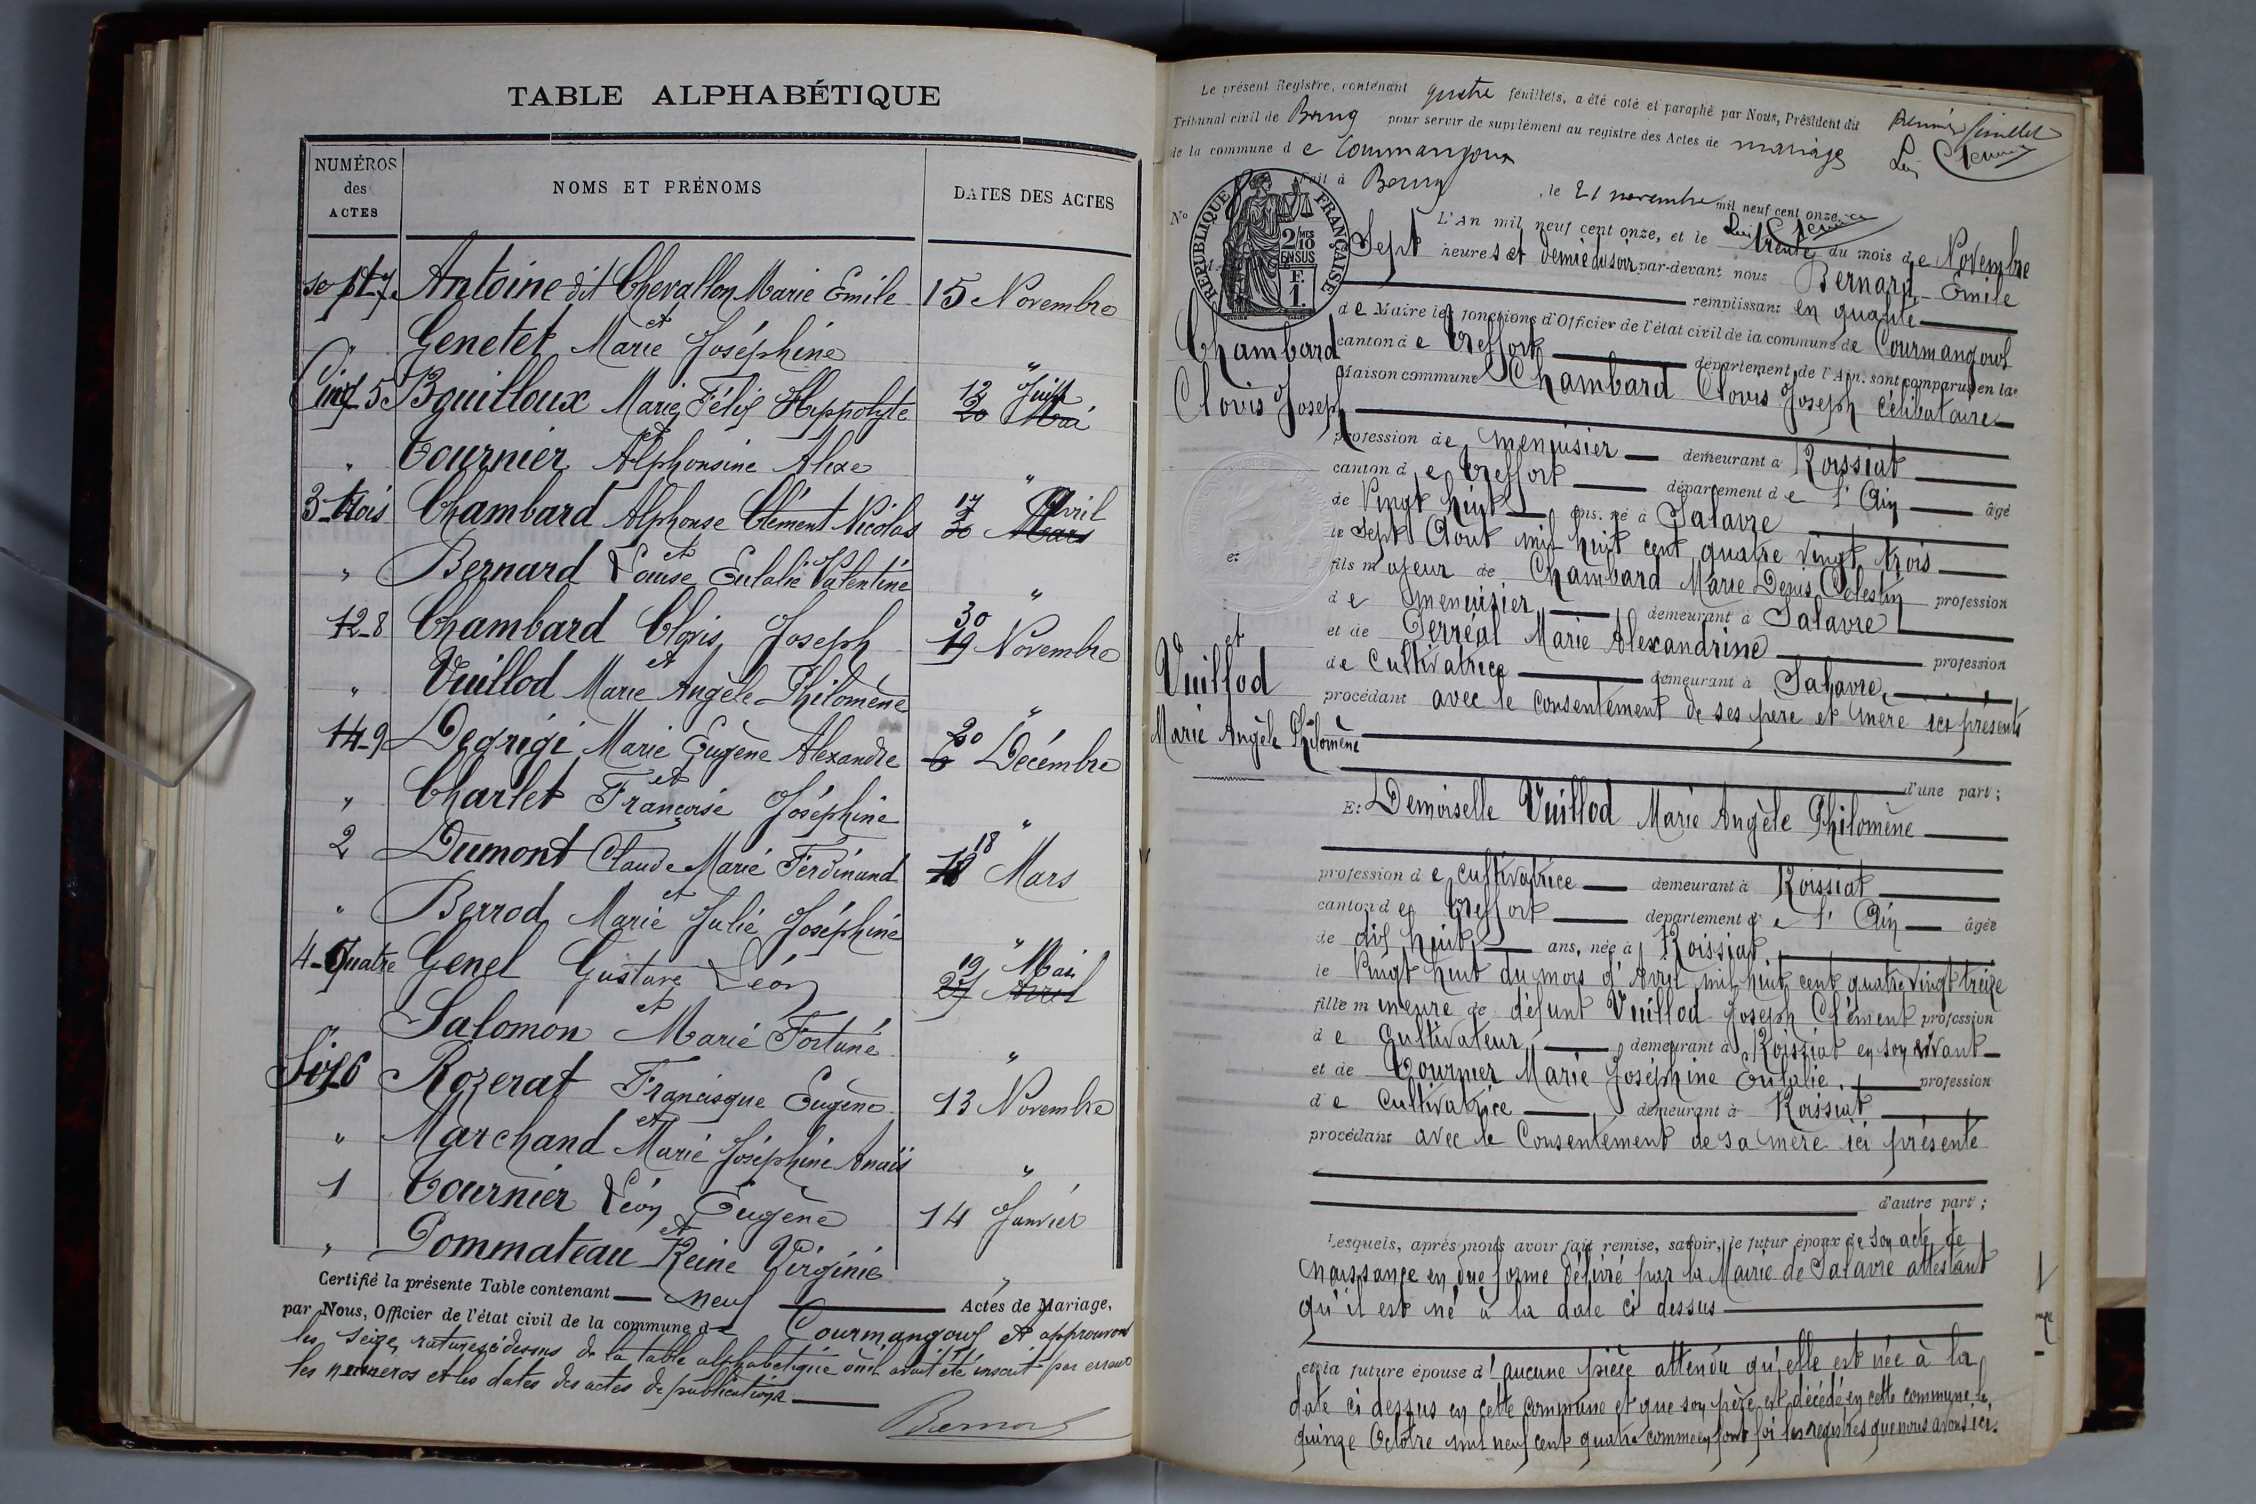 TABLE ALPHABÉTIQUE
NUMÉROS des ACTES
NOMS ET PRÉNOMS
DATES DES ACTES
sept 7 Antoine dit Chevallon Marie Emile 15 Novembre
et
" Genetet Marie Joséphine "
Cinq 5 Bouilloux Marie Félix Hippolyte 12 Juin
20 Mai
et
" Tournier Alphonsine Alixe "
3 trois Chambard Alphonse Clément Nicolas 17 Avril
30 Mars
et
" Bernard Louise Eulalie Valentine "
12-8 Chambard Clovis Joseph 30
19 Novembre
et
" Vuillod Marie Angèle Philomène "
14-9 Degrigi Marie Eugène Alexandre 20
6 Décembre
et
" Charlet Françoise Joséphine "
2 Dumont Claude Marie Ferdinand 18
Mars
et
" Berrod Marie Julie Joséphine "
4-Quatre Genet Gustave Léon 19 Mai
Avril
et
" Salomon Marie Fortuné "
Six 6 Rozerat Francisque Eugène 13 Novembre
et
" Marchand Marie Joséphine Anaïs "
1 Tournier Léon Eugène 14 Janvier
et
" Pommateau Reine Virginie "
Certifié la présente Table contenant neuf Actes de Mariage,
par Nous, Officier de l'état civil de la commune de Courmangoux et approuvons
les seize ratures ci dessus de la table alphabétique où il avait été inscrit par erreur
les numeros et les dates des actes de publications
Bernard
Le présent Registre, contenant quatre feuillets, a été coté et paraphé par Nous, Président du
Premier feuillet
Tribunal civil de Bourg pour servir de supplément au registre des Actes de mariage
de la commune de Courmangoux
Fait à Bourg, le 21 novembre mil neuf cent onze
RÉPUBLIQUE FRANÇAISE
2/10 MES
EN SUS
1 F.
N°
L'An mil neuf cent onze, et le trente du mois de Novembre
Sept heures et demie du soir par-devant nous Bernard Emile
remplissant en qualité
de Maire les fonctions d'Officier de l'état civil de la commune de Courmangoux
Chambard
canton de Treffort département de l'Ain, sont comparus en la
Clovis Joseph
Maison commune Chambard Clovis Joseph célibataire
profession de menuisier demeurant à Roissiat
canton de Treffort département de l'Ain âgé
de vingt huit ans, né à Salavre
le sept Aout mil huit cent quatre vingt trois
et
fils majeur de Chambard Marie Denis Célestin profession
de menuisier demeurant à Salavre
et
et de Perréal Marie Alexandrine profession
Vuillod
de cultivatrice demeurant à Salavre
procédant avec le consentement de ses père et mère ici présents
Marie Angèle Philomène
d'une part;
Et Demoiselle Vuillod Marie Angèle Philomène
profession de cultivatrice demeurant à Roissiat
canton de Treffort département de l'Ain âgée
de dix huit ans, née à Roissiat
le vingt huit du mois d'Avril mil huit cent quatre vingt treize
fille mineure de défunt Vuillod Joseph Clément profession
de Cultivateur demeurant à Roissiat en son vivant
et de Tournier Marie Joséphine Eulalie profession
de cultivatrice demeurant à Roissiat
procédant avec le Consentement de sa mère ici présente
d'autre part;
Lesquels, après nous avoir fait remise, savoir, le futur époux de son acte de
naissance en due forme délivré par la Mairie de Salavre attestant
qu'il est né à la date ci dessus
et la future épouse d'aucune pièce attendu qu'elle est née à la
date ci dessus en cette commune et que son père est décédé en cette commune le
quinze Octobre mil neuf cent quatre comme en font foi les registres que nous avons ici.